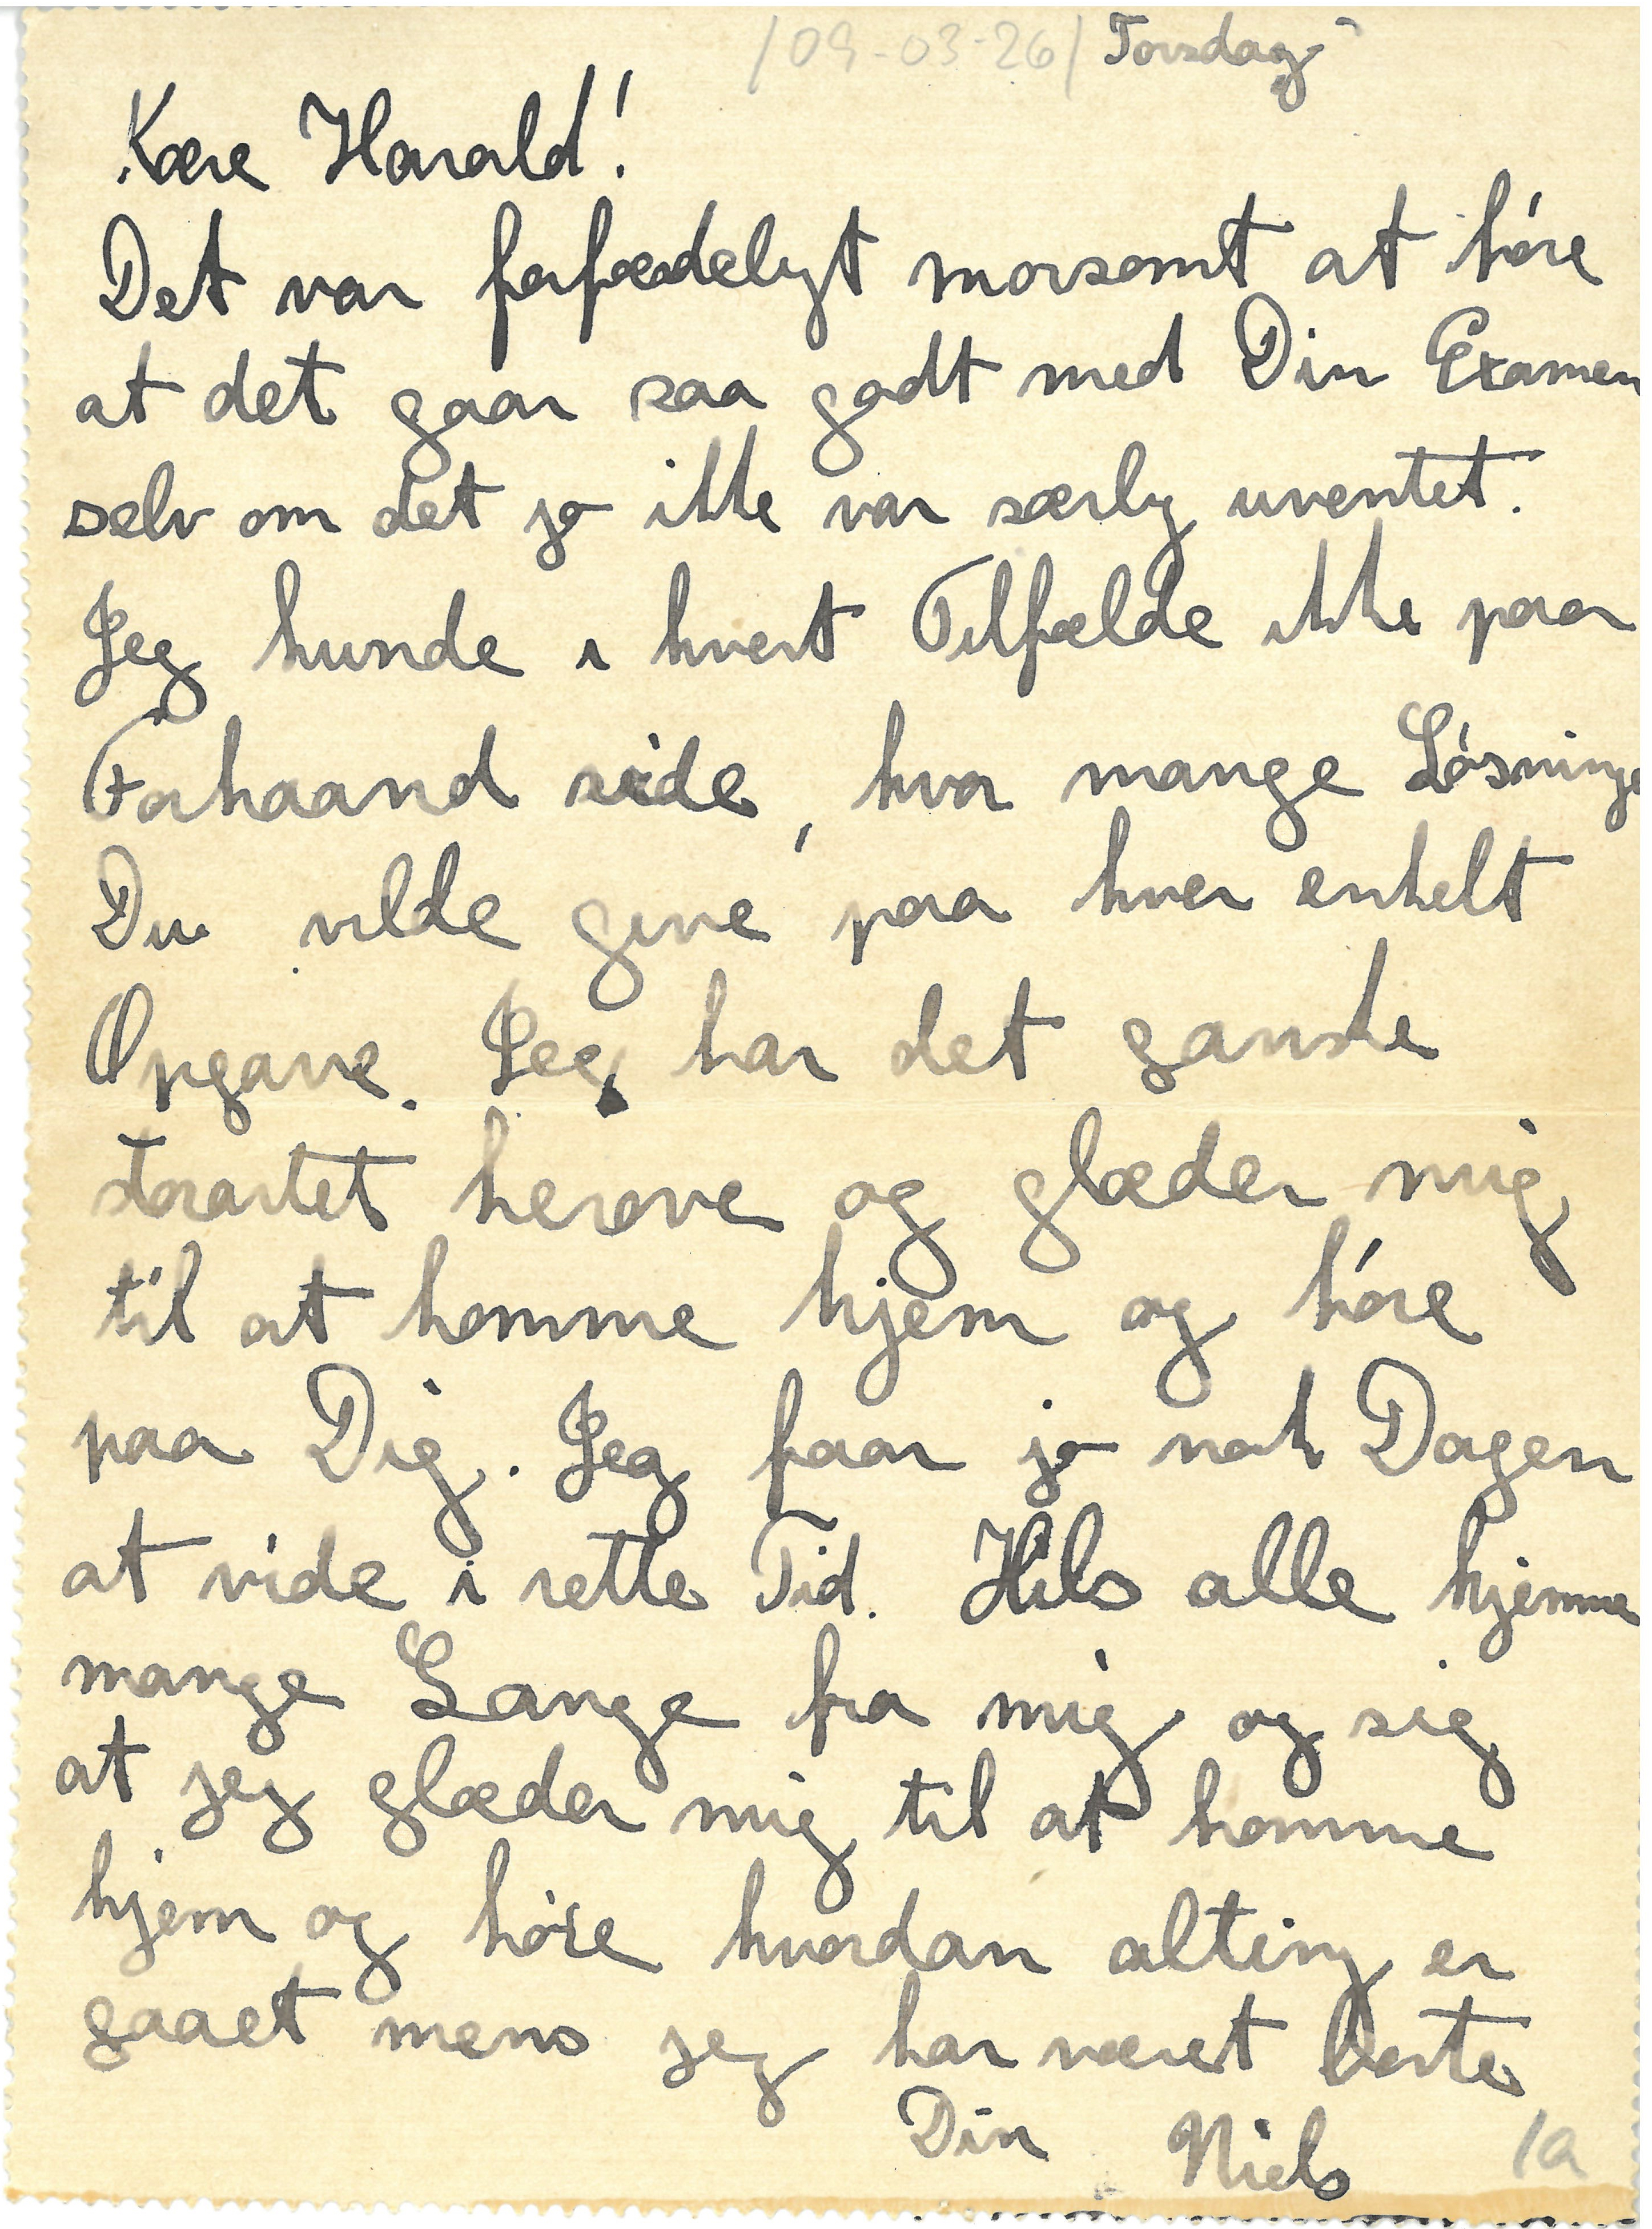 /09-03-26/ Torsdag
Kære Harald!
Det var forfærdeligt morsomt at høre
at det gaar saa godt med Din Examen
selv om det jo ikke var særlig uventet.
Jeg kunde i hvert Tilfælde ikke paa
Forhaand vide, hvor mange Løsninge
Du vilde give paa hver enkelt
Opgave. Jeg har det ganske
storartet herovre og glæder mig
til at komme hjem og høre
paa Dig. Jeg faar jo nok Dagen
at vide i rette Tid. Hils alle hjemme
mange Gange fra mig og sig
at jeg glæder mig til at komme
hjem og høre hvordan alting er
gaaet mens jeg har været borte
Din Niels
1a